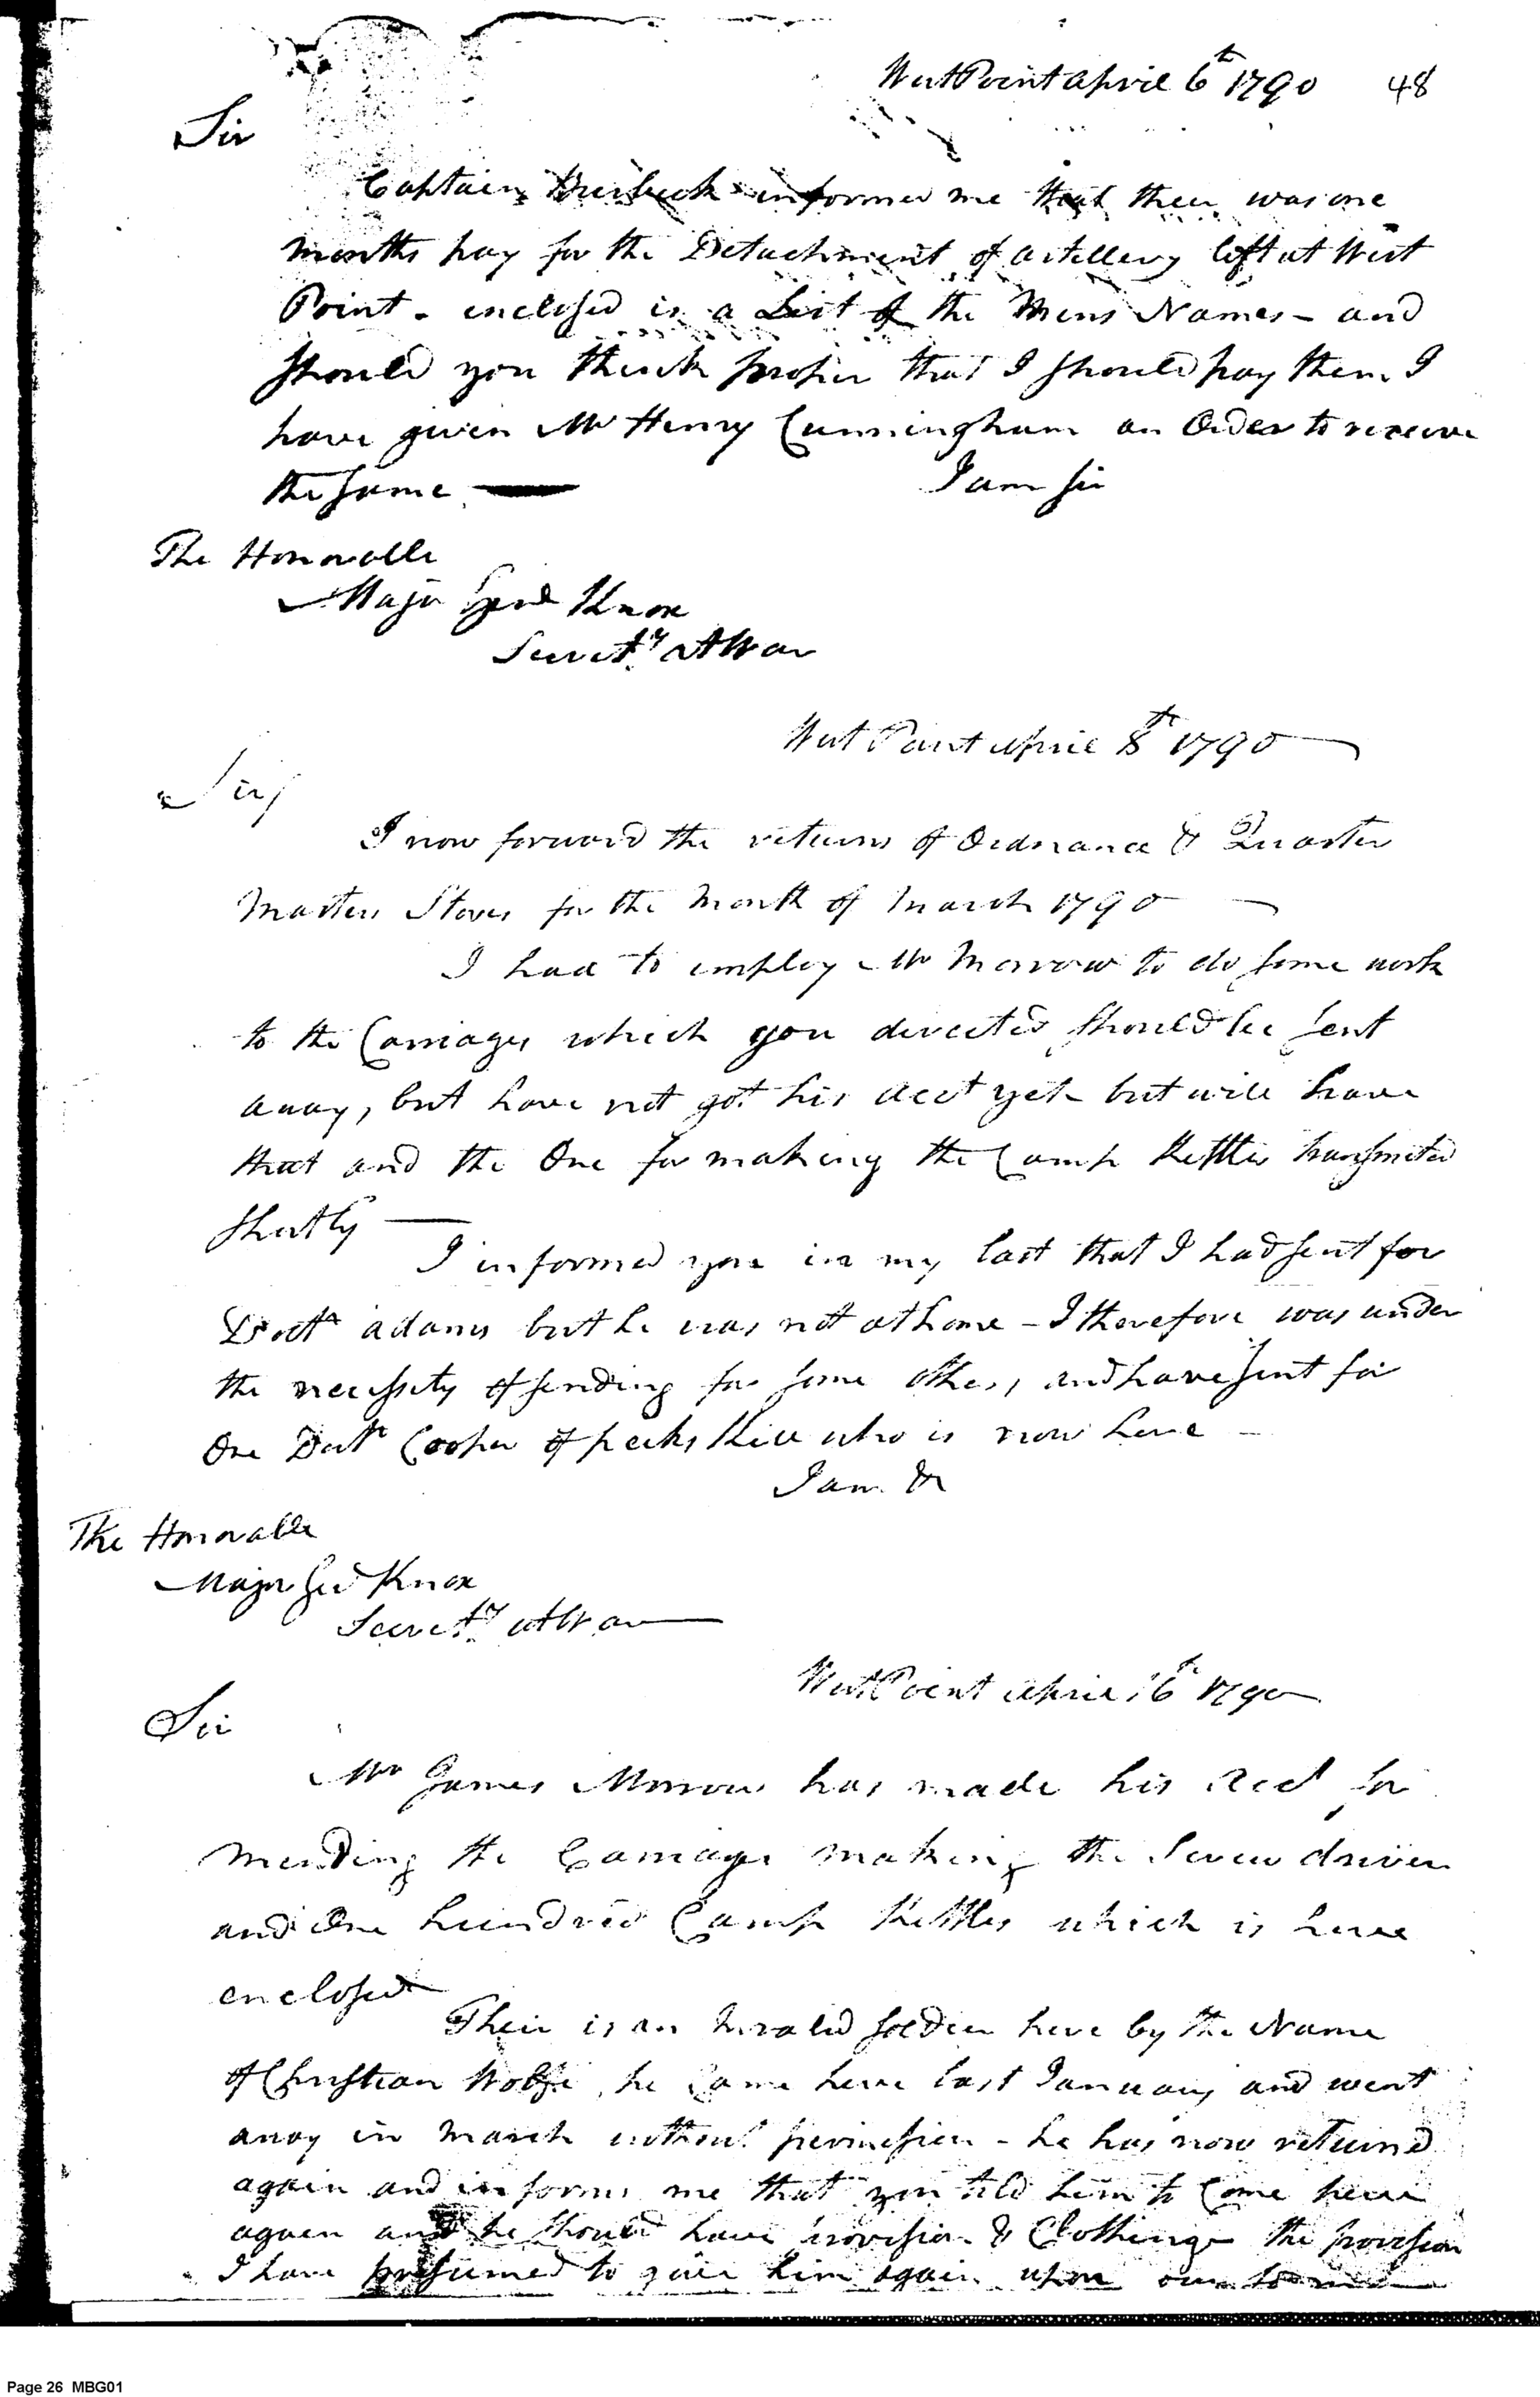 West Point april 6th 1790 48
Sir
Captain Burbeck informed me that there was one
months pay for the Detachment of artillery left at West
Point - enclosed is a List of the Mens Names - and
should you think proper that I should pay them I
have given Mr Henry Cunningham an Order to receive
the same
I am sir
The Honorable
Major Genl Knox
Secrety at War
West Point april 8th 1790
Sir
I now forward the returns of Ordnance & Quarter
Masters Stores for the Month of March 1790
I had to employ Mr Morrow to do some work
to the Carriages which you directed should be sent
away, but have not got his acct yet but will have
that and the One for making the Camp Kettles transmited
shortly
I informed you in my last that I had sent for
Doctr adams but he was not at home - I therefore was under
the necessity of sending for some other, and have sent for
One Doctr Cooper of peeks Kill who is now here
I am &c
The Honorable
Major Genl Knox
Secrety at War
West Point april 16th 1790
Sir
Mr James Morrow has made his acct for
mending the Carriages making the Screw driver
and One hundred Camp Kettles which is here
enclosed
Their is an Invalid soldier here by the Name
of Christian Wolfe, he Came here last January and went
away in March without permission - he has now returned
again and informs me that you told him to Come here
again and he should have provision & Clothing the provision
I have presumed to give him again upon our